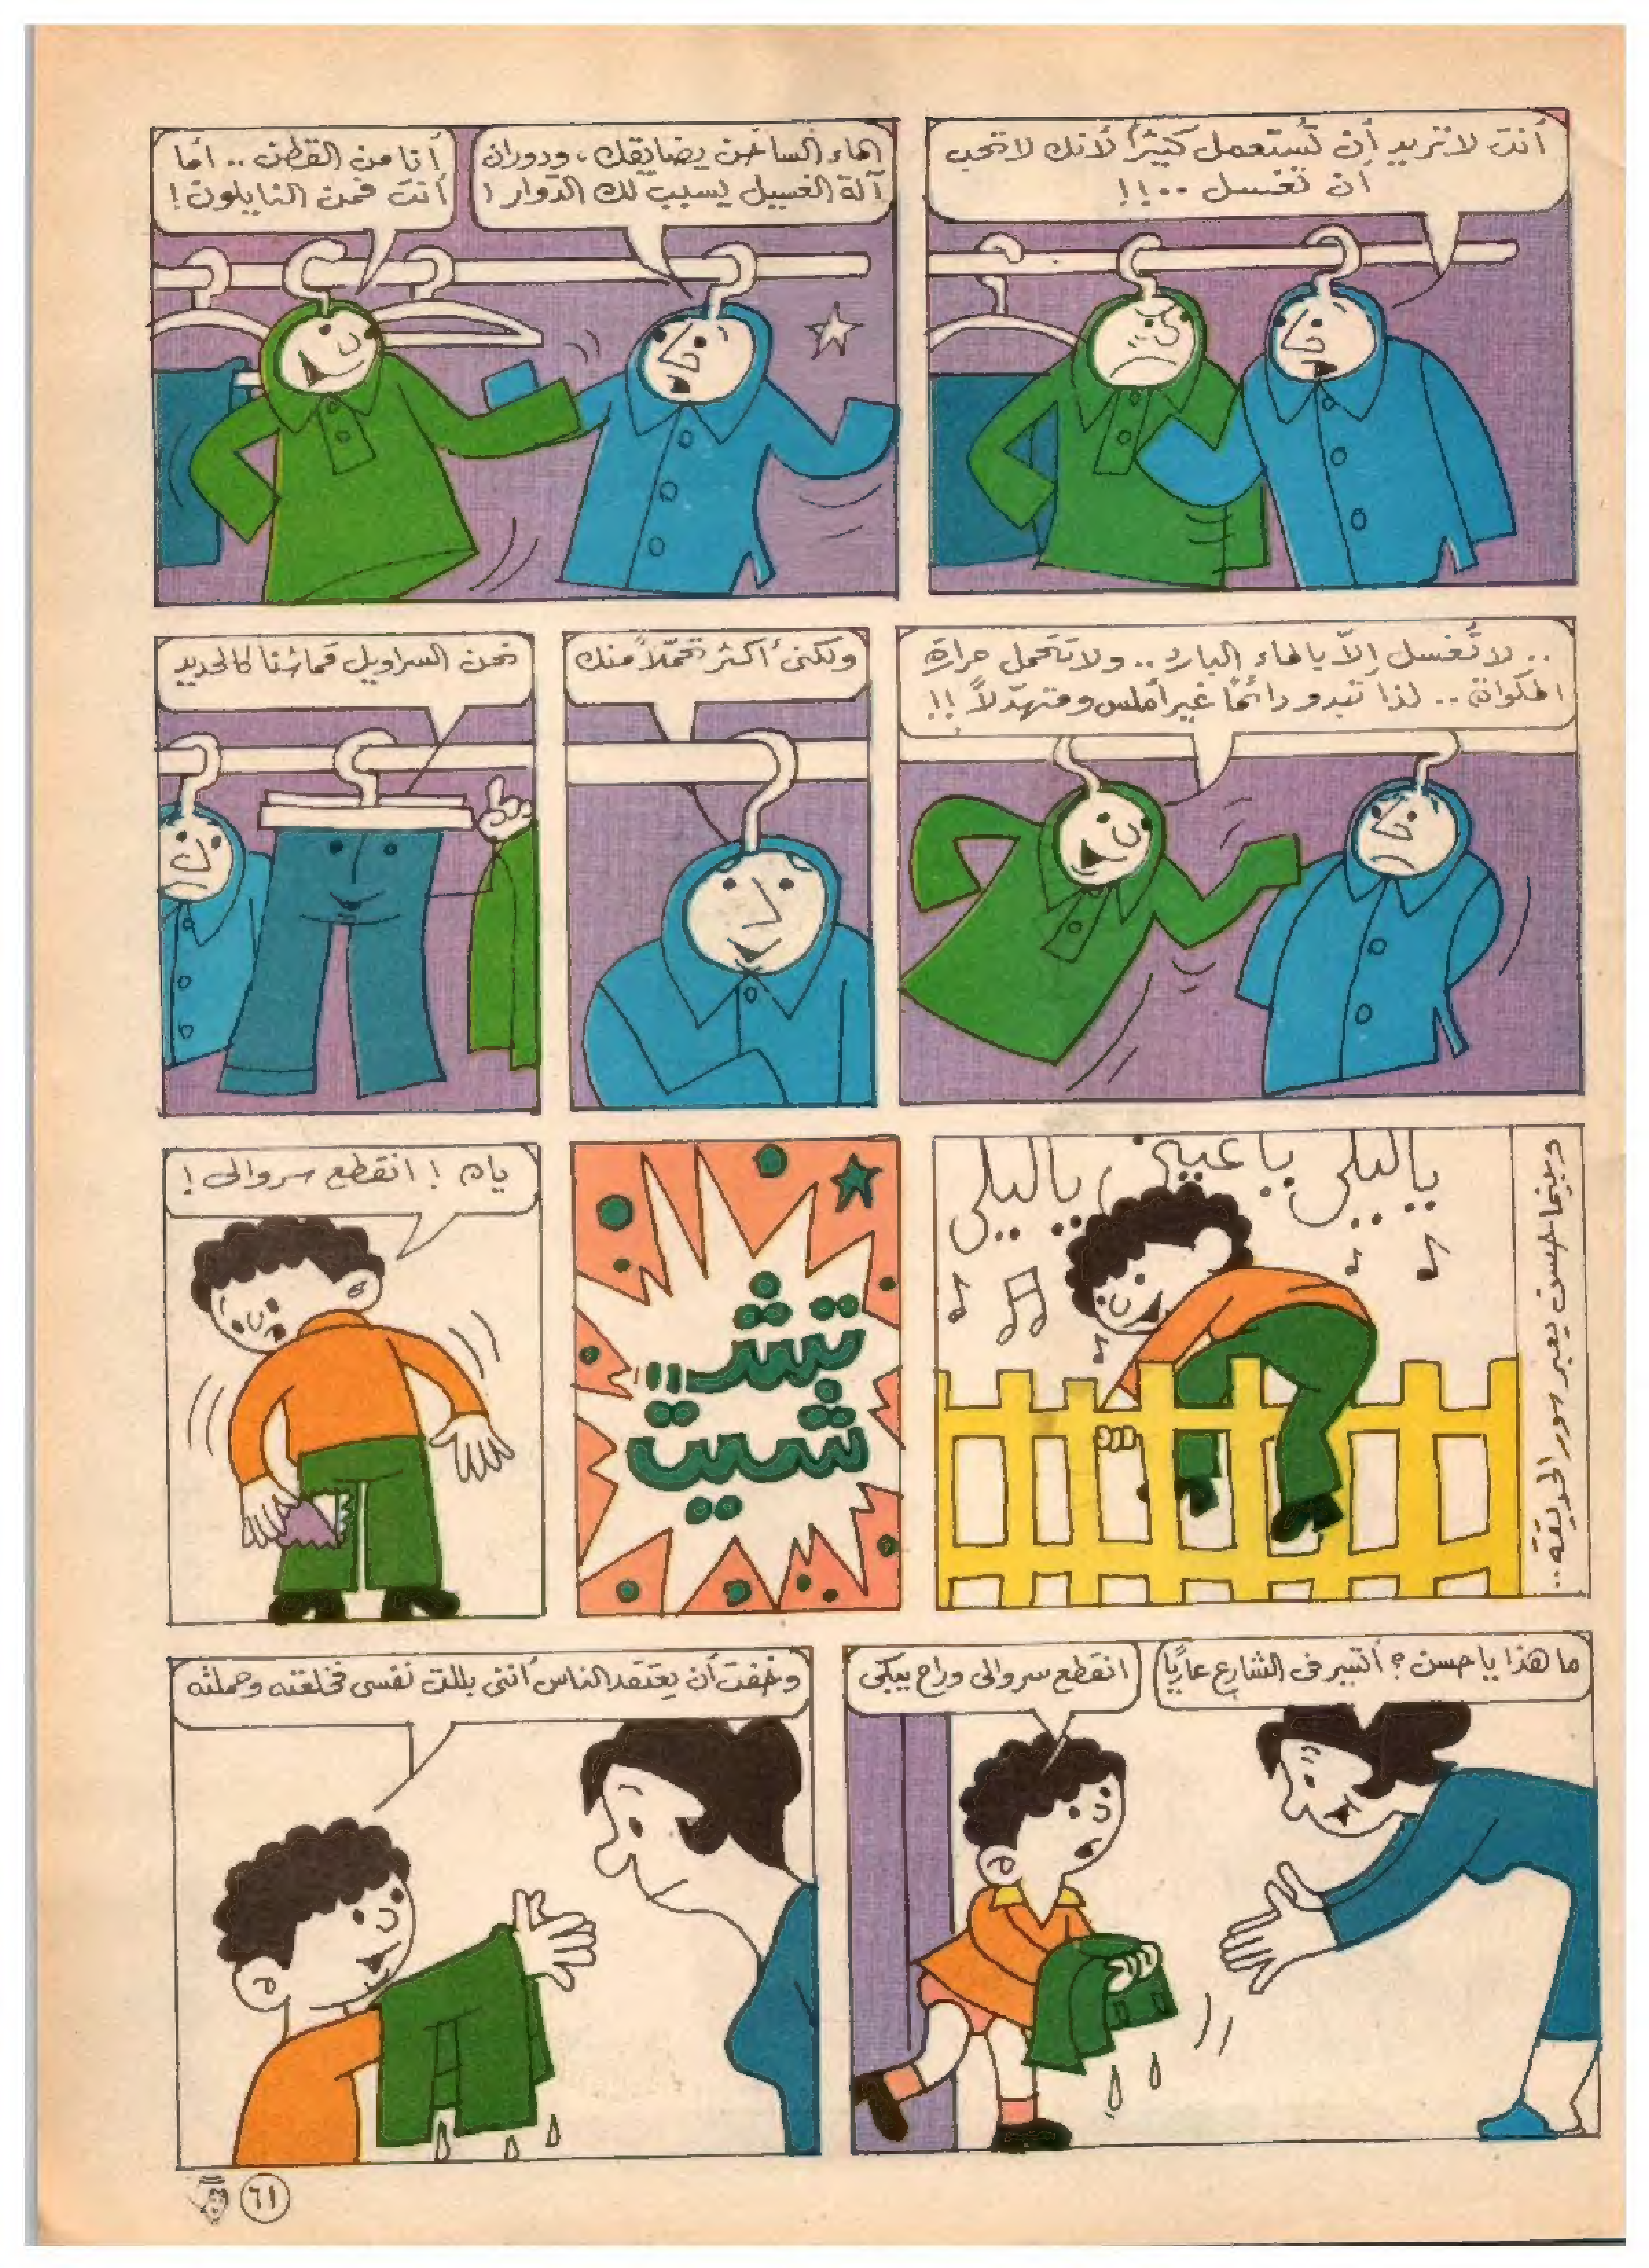 أنت لا تريد أن تُستعمل كثيراً لأنك لا تحب
أن تغسل ..!!
الماء الساخن يضايقك، ودوران
آلة الغسيل يسبب لك الدّوار !
أنا من القطن .. أمّا
أنت فمن النايلون !
.. لا تُغسل إلاّ بالماء البارد .. ولا تتحمل حرارة
المكواة .. لذا تبدو دائمًا غير أملس ومتهدّلاً !!
ولكنى أكثر تحمّلاً منك
نحن السراويل قماشنا كالحديد
وبينما حسن يعبر سور الحديقة ..
ياليلى ياعينى، ياليلى
تشـ..
شيت
ياه ! انقطع سروالى !
ما هذا يا حسن ؟ أتسير فى الشارع عاريًا
انقطع سروالى وراح يبكى
وخفت أن يعتقد الناس أننى بللت نفسى فخلعته وحملته
٦١